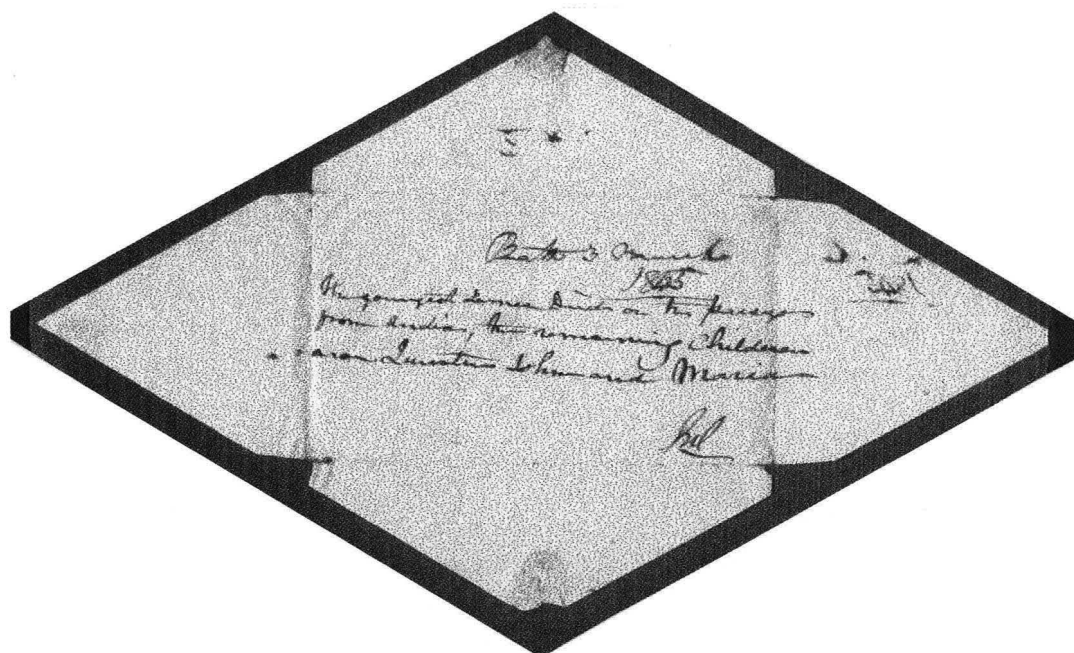 Bath 3 March
1865
The youngest James Died on the passage
from India, the remaining Children
are Quintin John and Maria